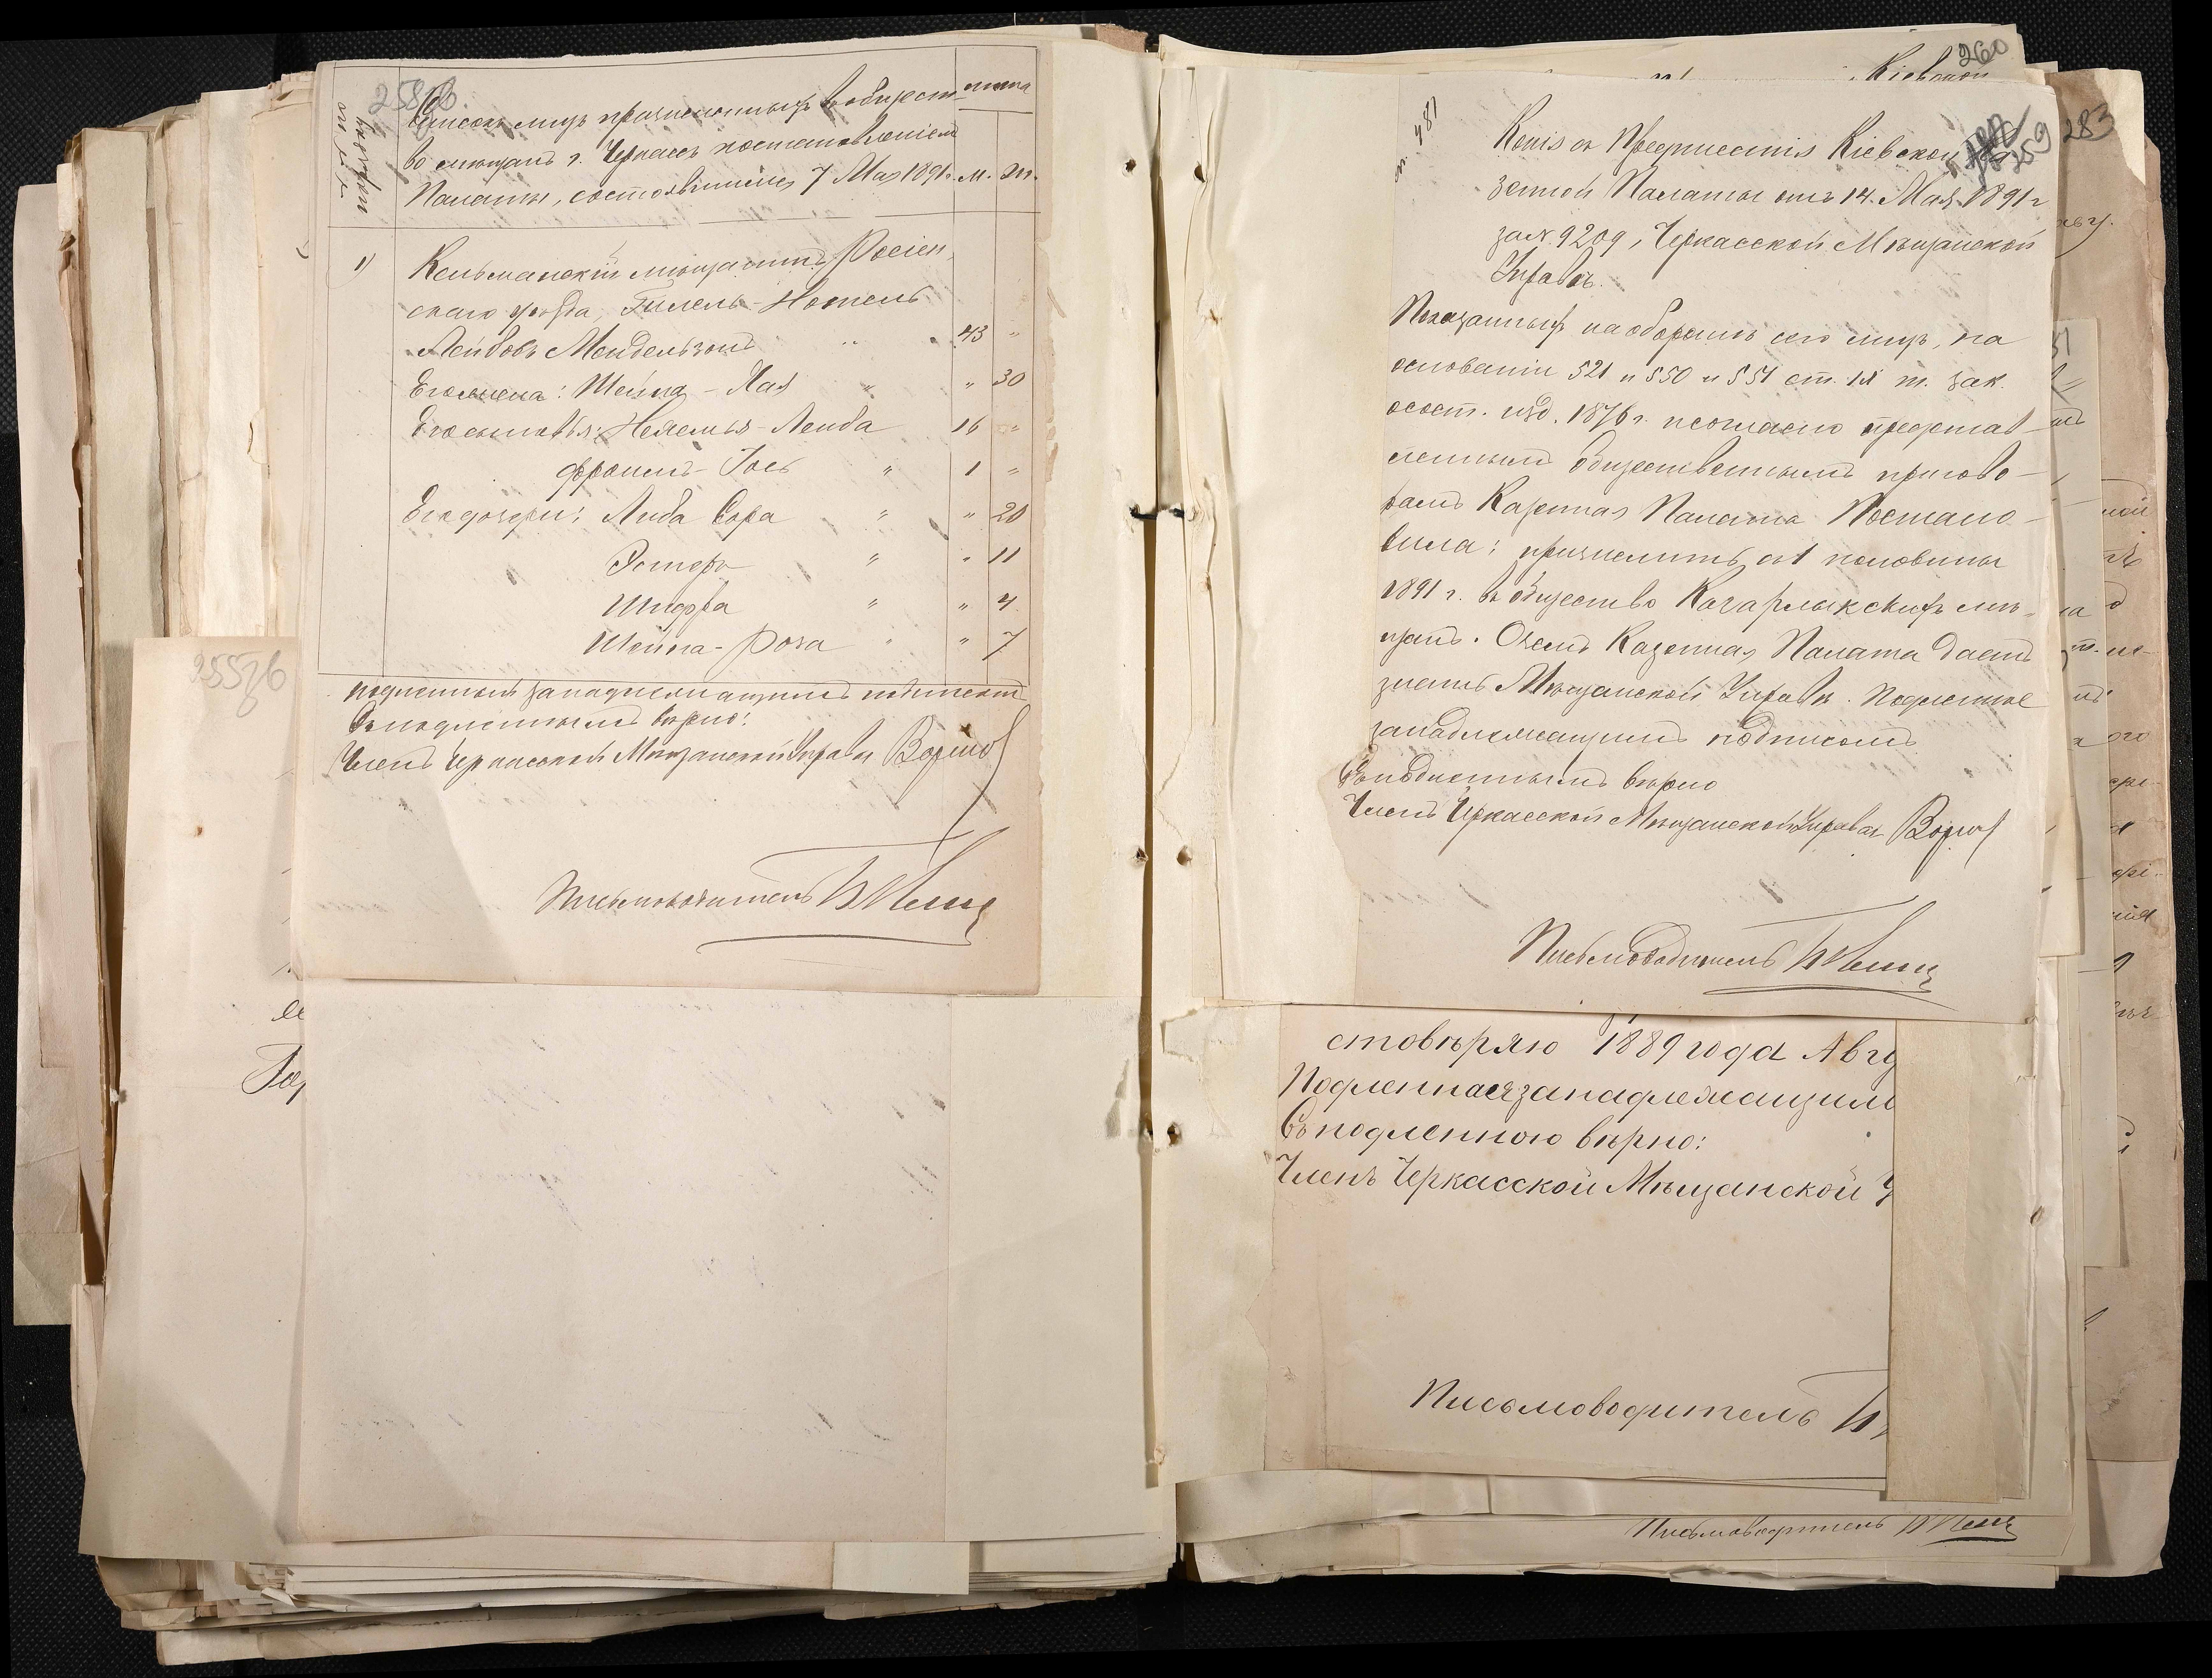 258об.
Списокъ лицъ причисленныхъ въ общест-
во мѣщанъ г. Черкассъ постановленіемъ
Палаты, состоявшимся 7 Мая 1891 г.
лѣта
м. ж.
1) Кельманскій мѣщанинъ, Росіен-
скаго уѣзда, Гилель-Нотель
Лейбовъ Мендельзонъ " 43 "
Его жена: Шейна-Хая " " 30
Его сыновья: Нехемья-Лейба 16 "
Фроимъ-Іосъ " 1 "
Его дочери: Либа Сора " " 20
Эстеръ " " 11
Шифра " " 4
Шейна-Роза " " 7
подленный за надлежащимъ подписомъ
Съ подленнымъ вѣрно:
Членъ Черкасской Мѣщанской Управы
Письмоводитель
255об
260
Кіевской
283
259
ст. 481
Копія съ Предписанія Кіевской Ка-
зенной Палаты отъ 14 Мая 1891 г
за № 9209, Черкасской Мѣщанской
Управѣ.
Показанныхъ на оборотѣ сего лицъ, на
основаніи 521 и 550 и 551 ст. IX т. зак.
о сост. изд. 1876 г. и согласно представ-
леннымъ общественнымъ пригово-
рамъ Казенная Палата Постано-
вила: причислить съ 1 половины
1891 г. въ общество Кагарлыкскихъ мѣ-
щанъ. О чемъ Казенная Палата даетъ
знать Мѣщанской Управѣ. Подленное
за надлежащимъ подписомъ
Съ подленнымъ вѣрно
Членъ Черкасской Мѣщанской Управы
Письмоводитель
стовѣряю 1889 года Авгу
Подленная за надлежащим
Съ подленною вѣрно:
Членъ Черкасской Мѣщанской У
Письмоводитель
Письмоводитель